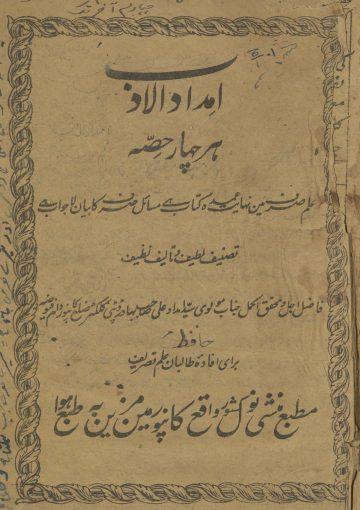 امداد الادب
ہر چہار حصّہ
علم صرف مین نہایت عمدہ کتاب ہے مسائل صرف کا بیان لاجواب ہے
تصنیف لطیف و تالیف نظیف
فاضل اجل و محقق اکمل جناب مولوی سید امداد علی صاحب بہادر ڈپٹی کلکٹر ضلع کانپور دام
حافظ
برای افادۂ طالبان علم تصریف
مطبع منشی نولکشور واقع کانپور مین مزین بہ طبع ہوا